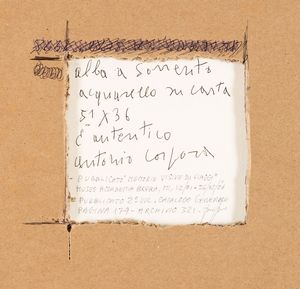 alba a Sorrento
acquarello su carta
51 X 36
È autentico
antonio corpora
- PUBBLICATO "MEMORIE VISIVE DI VIAGGI"
MUSEO ACCADEMIA
- PUBBLICATO 2° VOL. CATALOGO GENERALE
PAGINA 179 - ARCHIVIO 321